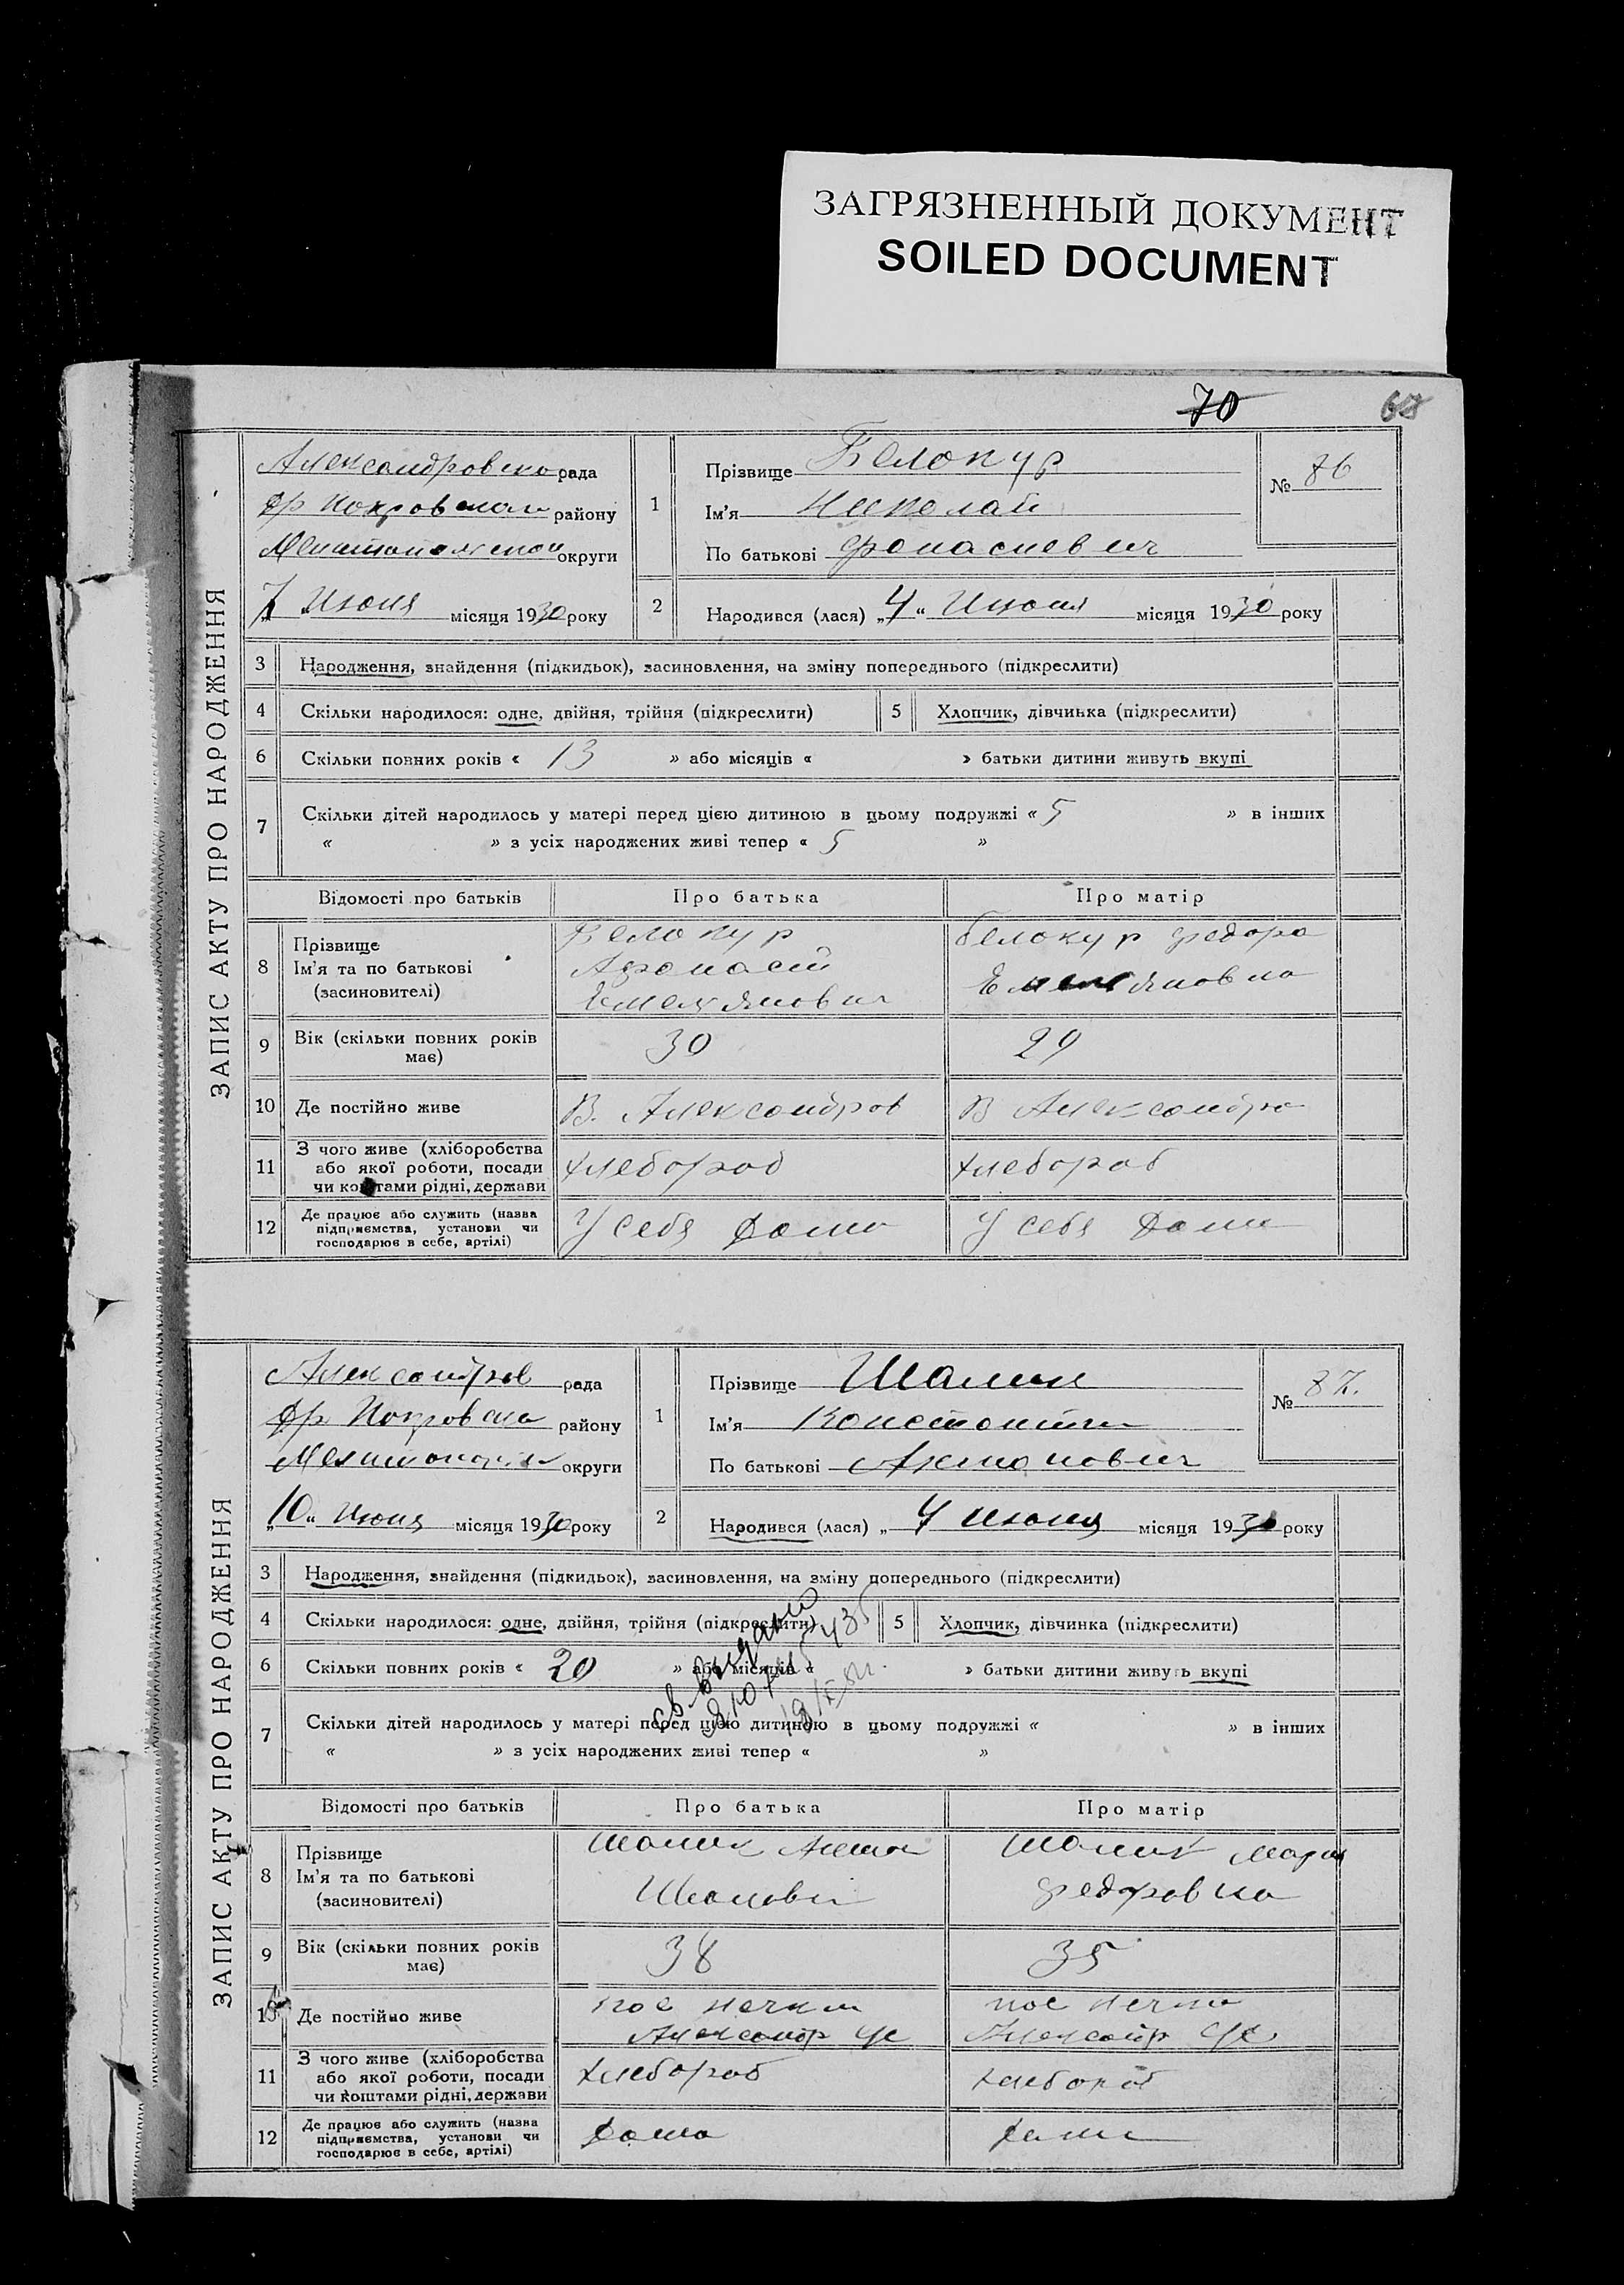 ЗАГРЯЗНЕННЫЙ ДОКУМЕНТ
SOILED DOCUMENT
70
68
ЗАПИС АКТУ ПРО НАРОДЖЕННЯ
Александровско рада
Покровская району
Мелитопольской округи
7 Июня місяця 1930 року
1
Прізвище Белокур
Ім'я Николай
По батькові Фонасиевич
№ 86
2
Народився (лася) „4“ Июня місяця 1930 року
3 Народження, знайдення (підкидьок), засиновлення, на зміну попереднього (підкреслити)
4 Скільки народилося: одне, двійня, трійня (підкреслити) 5 Хлопчик, дівчинка (підкреслити)
6 Скільки повних років « 13 » або місяців « » батьки дитини живуть вкупі
7 Скільки дітей народилось у матері перед цією дитиною в цьому подружжі « 5 » в інших
« » з усіх народжених живі тепер « 5 »
Відомості про батьків Про батька Про матір
8 Прізвище
Ім'я та по батькові
(засиновителі)
Белокур
Афонасий
Емельянович
Белокур Федора
Емельяновна
9 Вік (скільки повних років
має)
30 29
10 Де постійно живе В. Александров В Александро
11 З чого живе (хліборобства
або якої роботи, посади
чи коштами рідні, держави
хлебороб хлебороб
12 Де працює або служить (назва
підприємства, установи чи
господарює в себе, артілі)
У себя дома У себя дома
ЗАПИС АКТУ ПРО НАРОДЖЕННЯ
Александров рада
Покровско району
округи
„10“ Июня місяця 1930 року
1
Прізвище Шалик
Ім'я Константин
По батькові Антонович
№ 87.
2
Народився (лася) „ 4 июня місяця 1930 року
3 Народження, знайдення (підкидьок), засиновлення, на зміну попереднього (підкреслити)
4 Скільки народилося: одне, двійня, трійня (підкреслити) 5 Хлопчик, дівчинка (підкреслити)
6 Скільки повних років « 20 » або місяців « » батьки дитини живуть вкупі
7 Скільки дітей народилось у матері перед цією дитиною в цьому подружжі « » в інших
« » з усіх народжених живі тепер « »
св выдано
Відомості про батьків Про батька Про матір
8 Прізвище
Ім'я та по батькові
(засиновителі)
Шалик Антон
Шалик Мария
Федоровна
9 Вік (скільки повних років
має)
38 35
10 Де постійно живе
11 З чого живе (хліборобства
або якої роботи, посади
чи коштами рідні, держави
хлебороб хлебороб
12 Де працює або служить (назва
підприємства, установи чи
господарює в себе, артілі)
дома дома